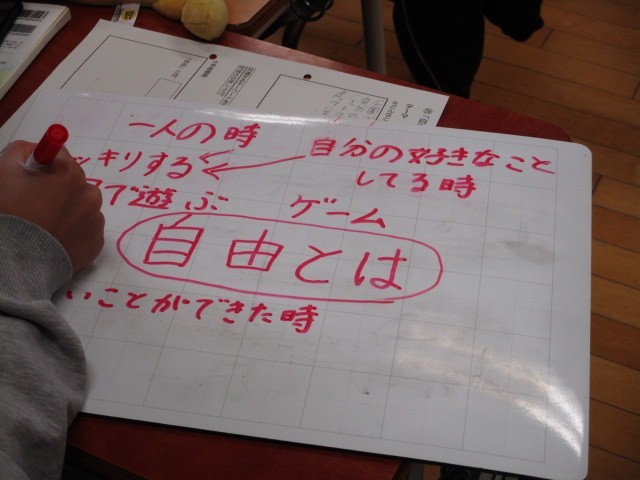 一人の時
自分の好きなこと
してる時
ッキリする
で遊ぶ
ゲーム
自由とは
いことができた時